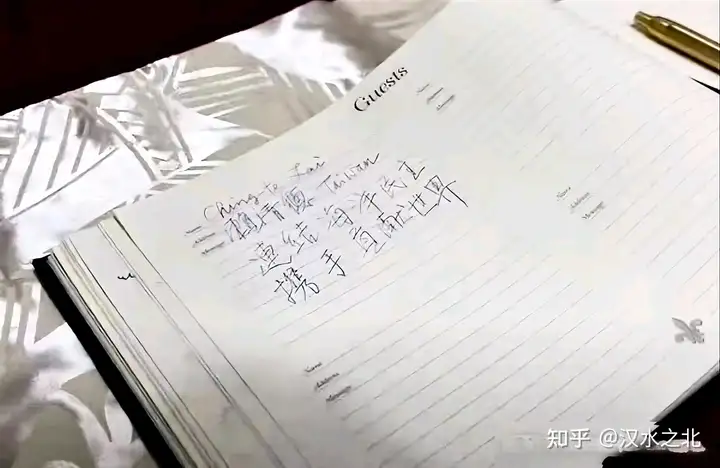 Guests
Name
Address
Message
Ching-te Lai
賴清德 Taiwan
連結海洋民主
携手貢献世界
Name
Address
Message
Name
Address
Message
知乎 @汉水之北